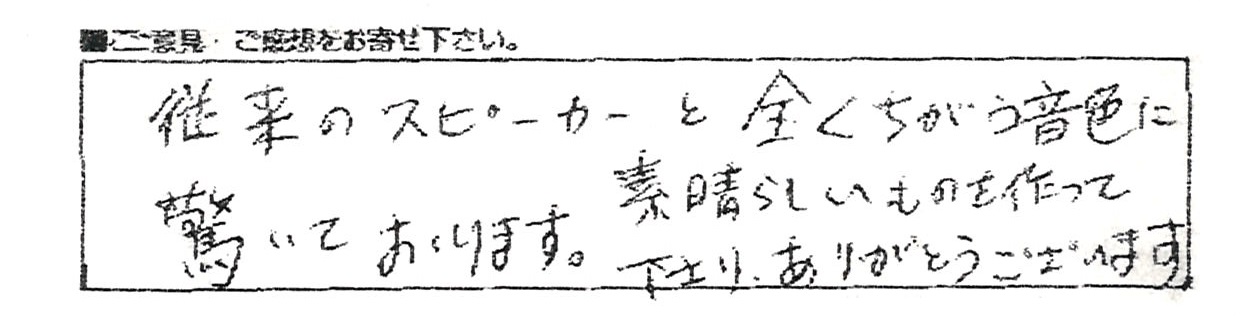 ■ご意見・ご感想をお寄せ下さい。
従来のスピーカーと全くちがう音色に
驚いております。
素晴らしいものを作って
下さり、ありがとうございます